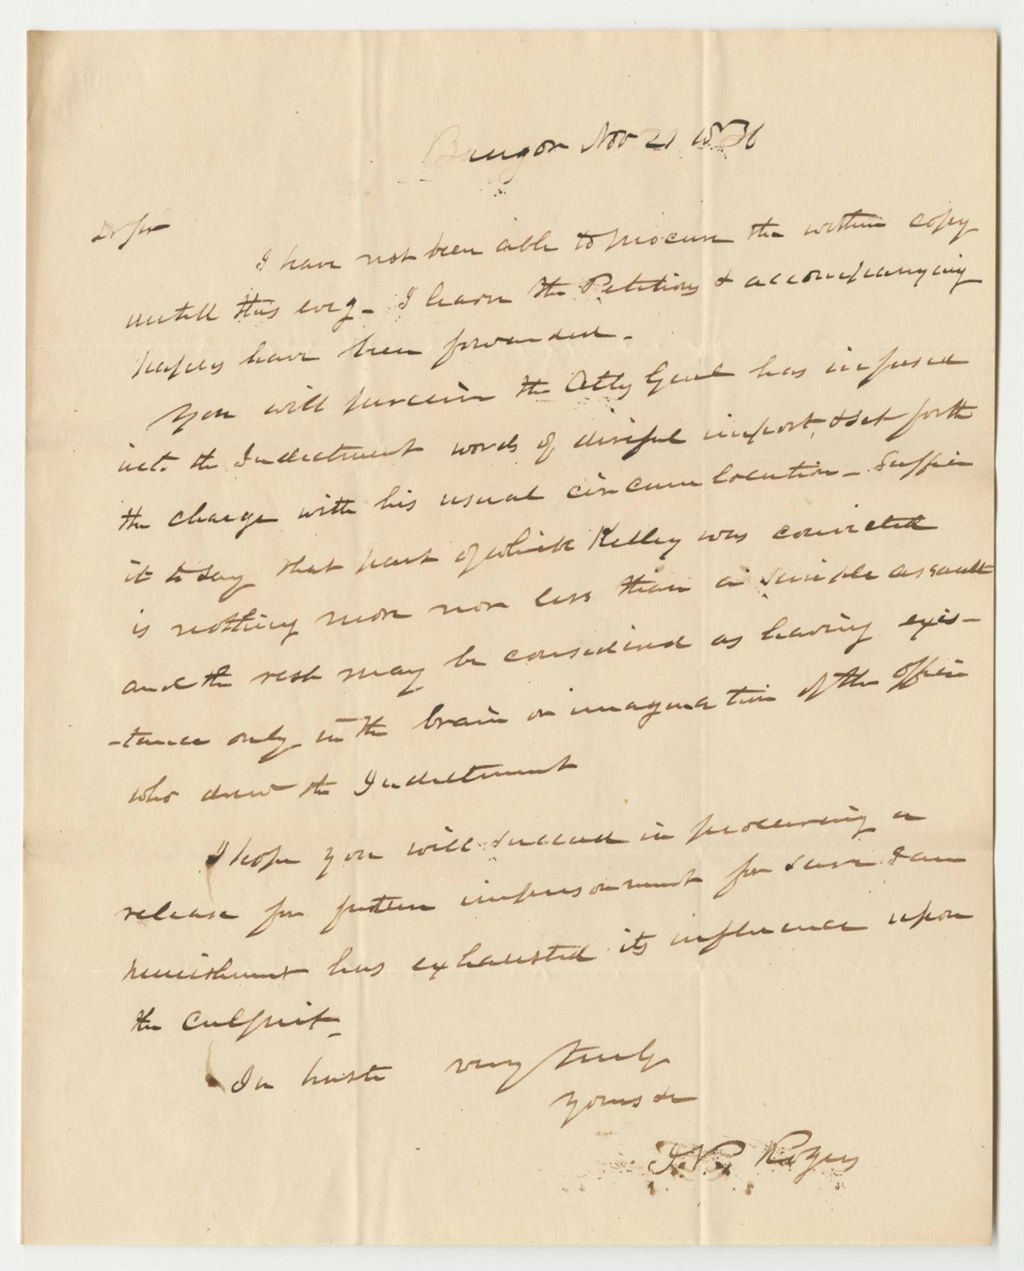 Bangor Nov 21 1836
Dr Sir
I have not been able to procure the within copy
untill this eveg - I learn the Petitions & accompanying
papers have been forwarded.
You will perceive the Atty Genl has infused
into the Indictment words of direful import, & set forth
the charge with his usual circumlocution - Suffice
it to say that part of which Kelley was convicted
is nothing more nor less than a simple assault
and the rest may be considered as having exis-
-tance only in the brain or imagination of the officer
who drew the Indictment
I hope you will succeed in procuring a
release for further imprisonment for sure I am
punishment has exhausted its influence upon
the culprit -
In haste very truly
Yours &c
J. Rogers